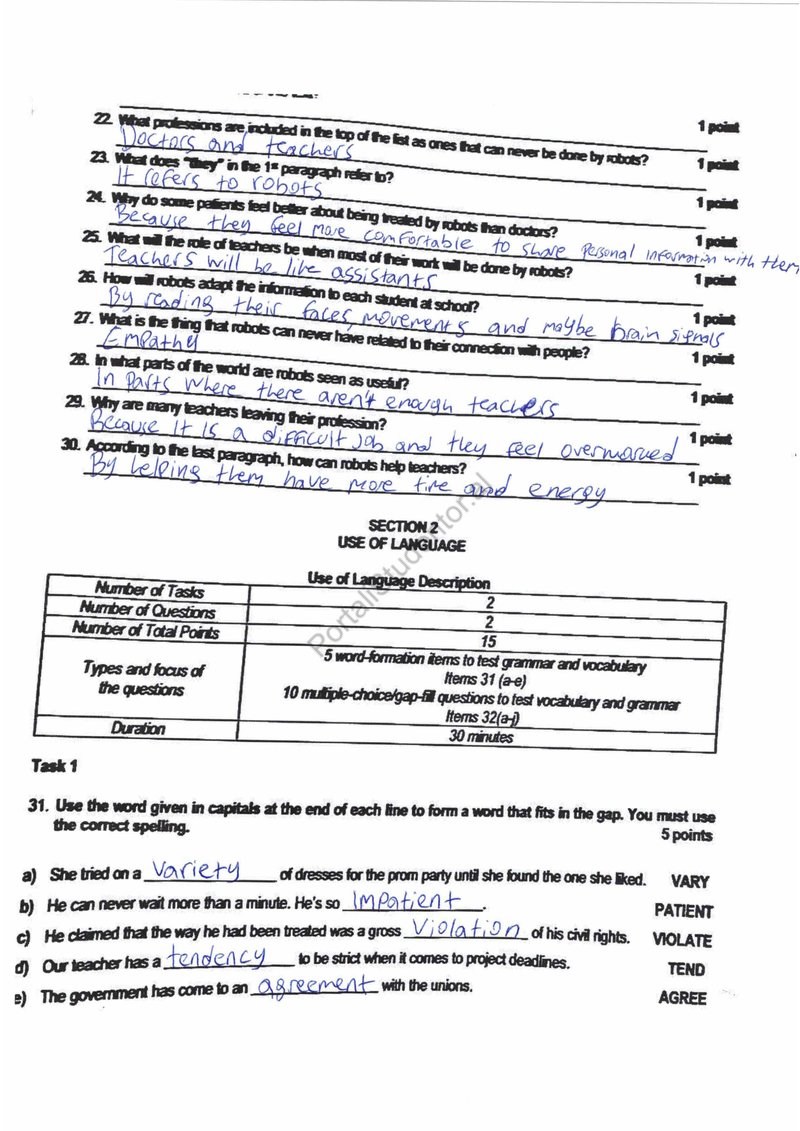 22. What professions are included in the top of the list as ones that can never be done by robots? 1 point
Doctors and teachers
23. What does "they" in the 1st paragraph refer to? 1 point
It refers to robots
24. Why do some patients feel better about being treated by robots than doctors? 1 point
Because they feel more comfortable to share personal information with them
25. What will the role of teachers be when most of their work will be done by robots? 1 point
Teachers will be like assistants
26. How will robots adapt the information to each student at school? 1 point
By reading their faces, movements and maybe brain signals
27. What is the thing that robots can never have related to their connection with people? 1 point
Empathy
28. In what parts of the world are robots seen as useful? 1 point
In parts where there aren't enough teachers
29. Why are many teachers leaving their profession? 1 point
Because it is a difficult job and they feel
30. According to the last paragraph, how can robots help teachers? 1 point
By helping them have more time and energy
1 point
SECTION 2
USE OF LANGUAGE
Use of Language Description
Number of Tasks 2
Number of Questions 2
Number of Total Points 15
Types and focus of the questions
5 word-formation items to test grammar and vocabulary
Items 31 (a-e)
10 multiple-choice/gap-fill questions to test vocabulary and grammar
Items 32(a-j)
Duration 30 minutes
Portali Studentor.al
Task 1
31. Use the word given in capitals at the end of each line to form a word that fits in the gap. You must use
the correct spelling. 5 points
a) She tried on a variety of dresses for the prom party until she found the one she liked. VARY
b) He can never wait more than a minute. He's so impatient. PATIENT
c) He claimed that the way he had been treated was a gross violation of his civil rights. VIOLATE
d) Our teacher has a tendency to be strict when it comes to project deadlines. TEND
e) The government has come to an agreement with the unions. AGREE